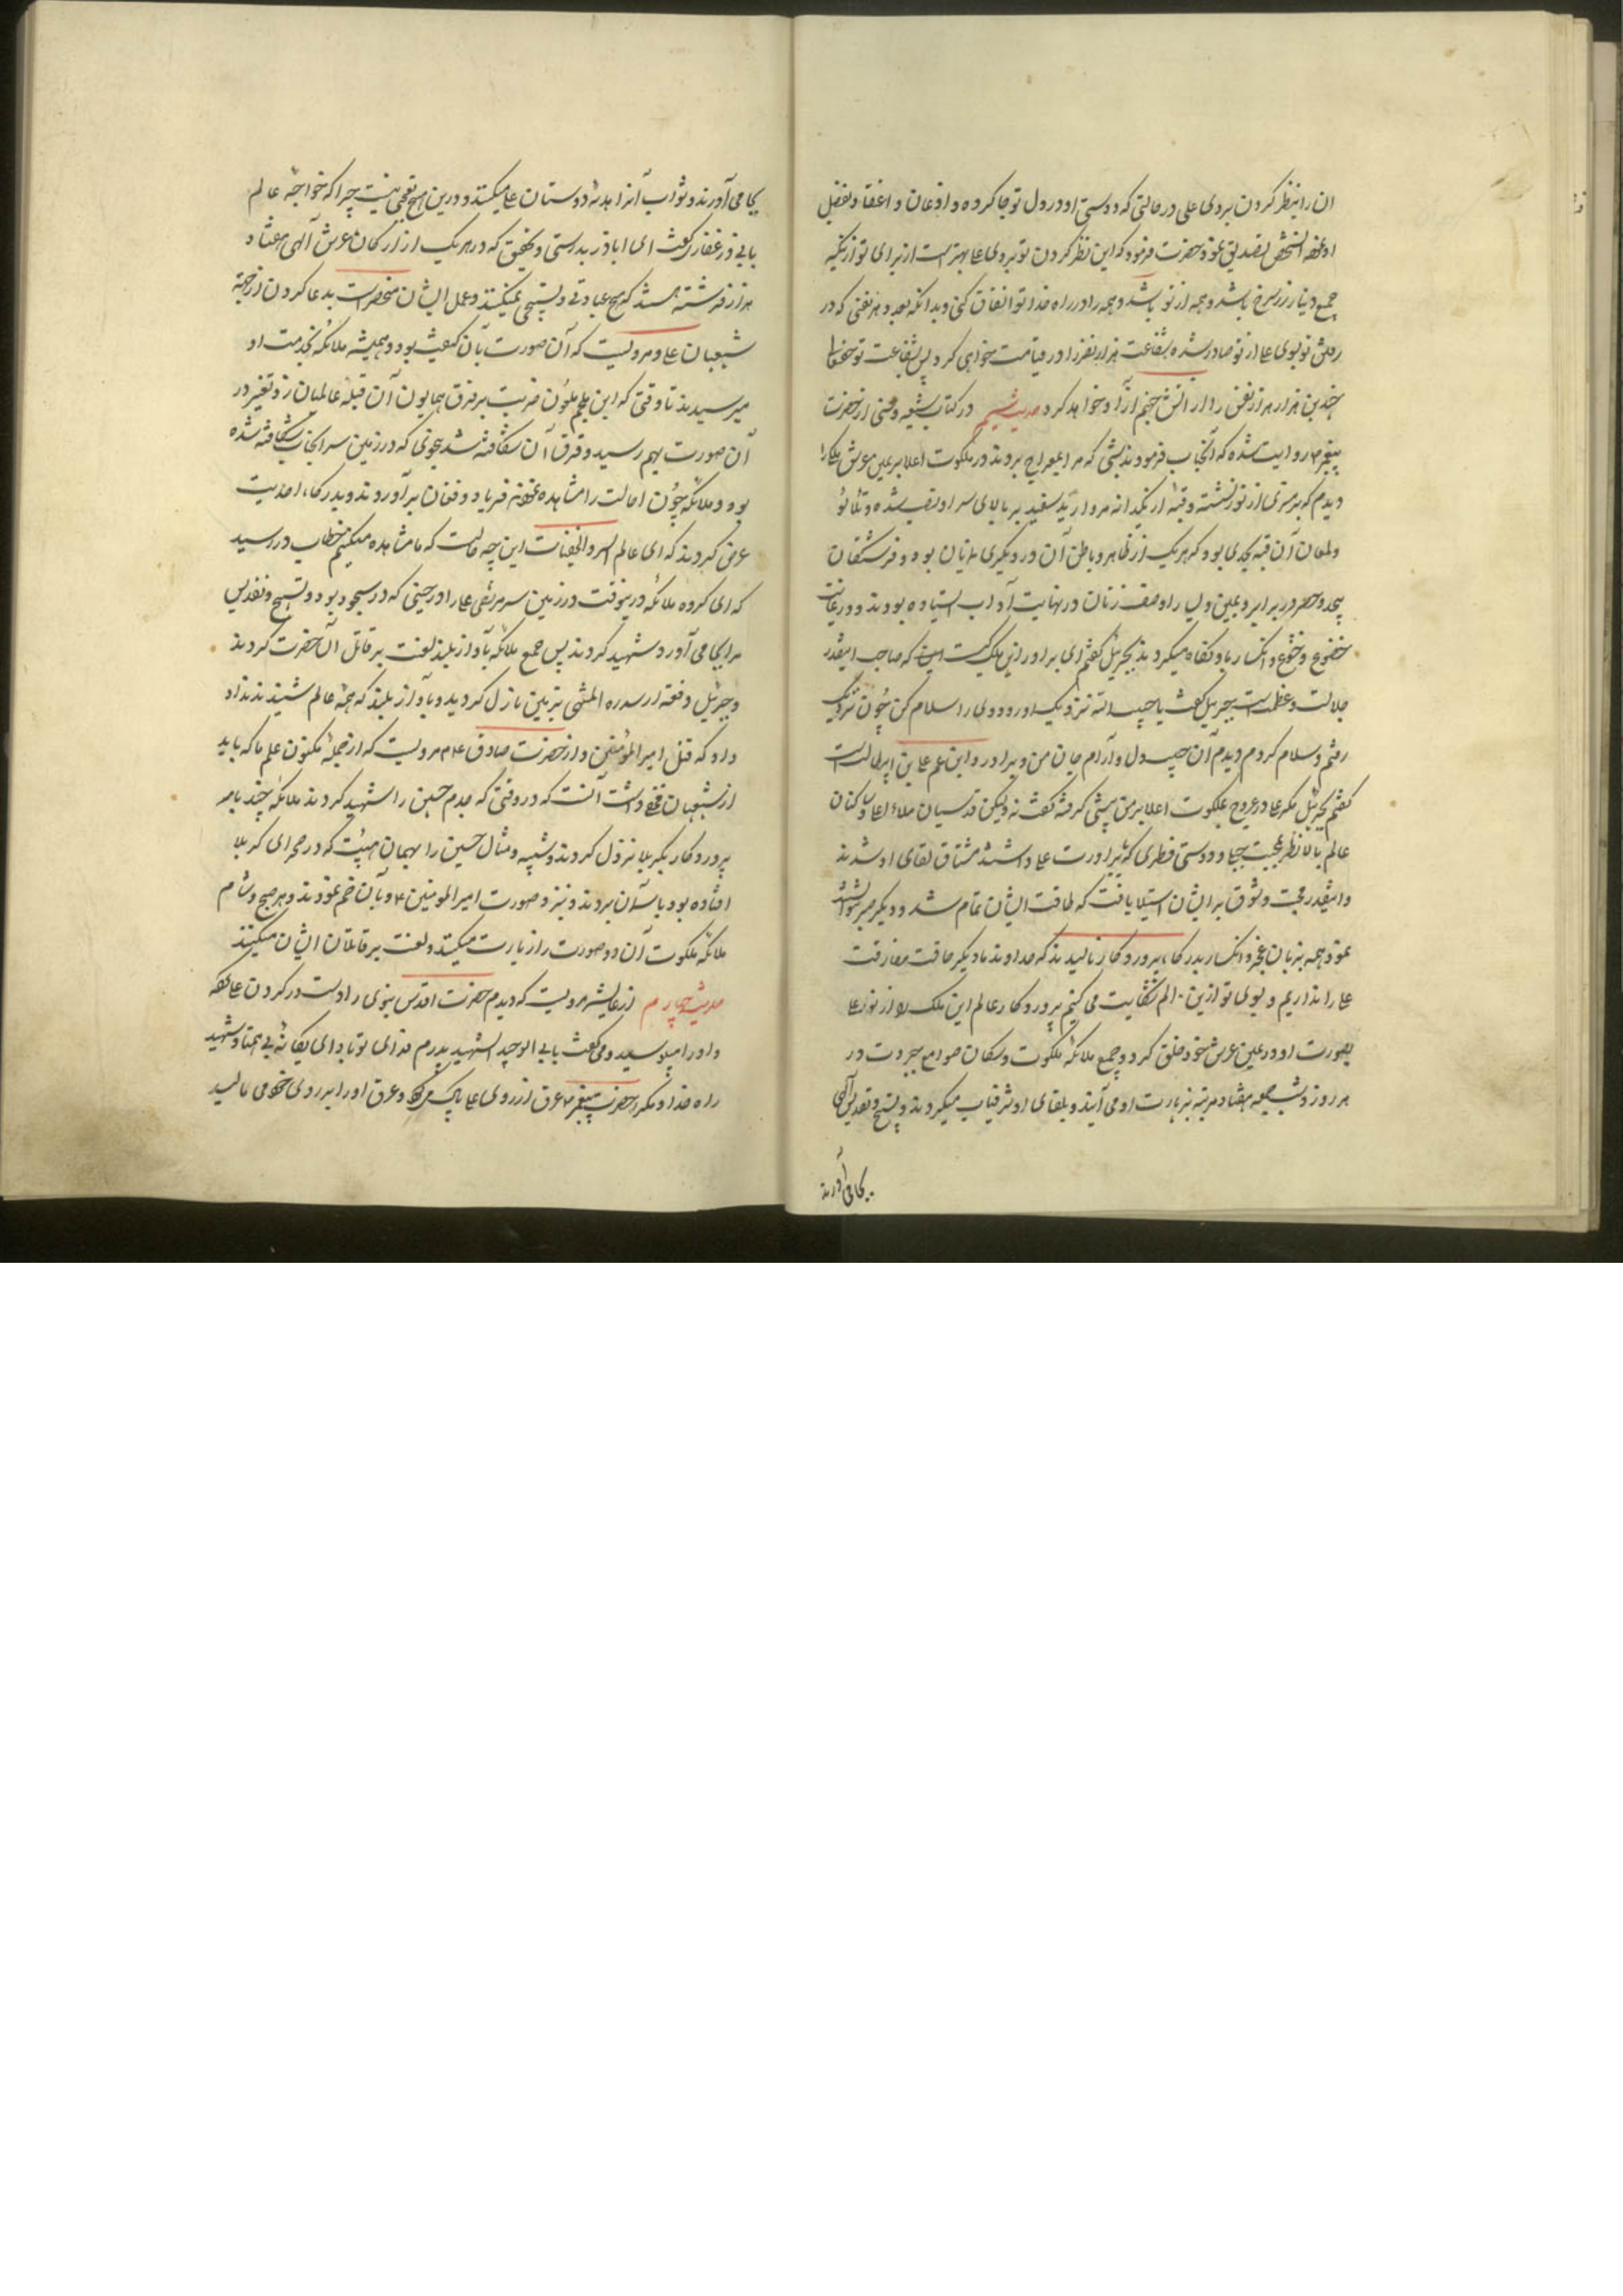 ان را بنظر کردن بروی علی در حالتی که دوستی او در دل تو جا کرده و اذعان و اعتقاد بفضل
او نموده الشخص تصدیق نمود حضرت فرمود که این نظر کردن تو بروی علی بهتر است از برای تو از آنکه
جمیع دینار زر سرخ باشد و همه از تو باشد و همه را در راه خدا تو انفاق کنی و بدانکه بعدد هر نفسی که در
رفتن تو بسوی علی از تو صادر شده شفاعت هزار نفر را در قیامت خواهی کرد پس بشفاعت تو حقتعالی
چندین هزار هزار نفس را از آتش جهنم آزاد خواهد کرد حدیث سیم در کتاب شیعه و سنی از حضرت
پیغمبر م روایت شده که آنجناب فرمودند شبی که مرا بمعراج بردند در ملکوت اعلا بر یمین عرش ملکی را
دیدم که بر سرتی از نور نشسته و قبه از یکدانه مروارید سفید بر بالای سر او نصب شده و تلألؤ
و لمعان آن قبه بحدی بود که هر یک از ظاهر و باطن آن در دیگری نمایان بود و فرشتگان
بیحد و حصر در برابر و یمین و یسار او صف زنان در نهایت آداب ایستاده بودند و در غایت
خضوع و خشوع و انکسار باو نگاه میکردند بجبرئیل گفتم ای برادر این ملک کیست که صاحب اینقدر
جلالت و عظمت است جبرئیل گفت یا حبیب الله نزدیک او رو و وی را سلام کن چون نزدیک
رفتم و سلام کردم دیدم آن حبیب دل و آرام جان من و برادر و ابن عم علی ابن ابیطالب است
گفتم بجبرئیل مگر علی در عروج بملکوت اعلا بر من پیشی گرفته گفت نه ولیکن قدسیان ملاء اعلا و ساکنان
عالم بالا نظر بمحبت جبلی و دوستی فطری که با برادرت علی داشتند مشتاق لقای او شدند
و اینقدر محبت و شوق بر ایشان استیلا یافت که طاقت ایشان تمام شد و دیگر صبر نتوانستند
نمود همه بزبان عجز و انکسار بدرگاه پروردگار نالیدند که خداوندا ما دیگر طاقت مفارقت
علی را نداریم و بسوی تو ازین الم شکایت می کنیم پروردگار عالم این ملک را از نور علی
بصورت او در یمین عرش خود خلق کرد و جمیع ملائکه ملکوت و سکان صوامع جبروت در
هر روز و شب جمعه هفتاد مرتبه بزیارت او می آیند و بلقای او شرفیاب میگردند و تسبیح و تقدیس الهی
بجا می آورند
بجا می آورند و ثواب آنرا هدیه دوستان علی میکنند و درین هیچ تعجبی نیست چرا که خواجه عالم
بابی ذر غفاری گفت ای اباذر بدرستی و تحقیق که در هر یک از ارکان عرش آلهی هفتاد
هزار فرشته هستند که هیچ عبادتی و تسبیحی نمیکنند و عمل ایشان منحصر است بدعا کردن از جهة
شیعیان علی و مرویست که آن صورت بآن کیفیت بود و همیشه ملائکه بخدمت او
میرسیدند تا وقتی که ابن ملجم ملعون ضربت بر فرق همایون آن قبله عالمیان زد و تغیر در
آن صورت بهم رسید و فرق آن شکافته شد بنحوی که در زمین سر آنجناب شکافته شده
بود و ملائکه چون احالت را مشاهده نموده فریاد و فغان برآوردند و بدرگاه احدیت
عرض کردند که ای عالم السر و الخفیات این چه حالت که ما مشاهده میکنیم خطاب در رسید
که ای گروه ملائکه در ینوقت در زمین سر مرتضی علی را در حینی که در سجود بود و تسبیح و تقدیس
مرا بجا می آورد شهید کردند پس جمیع ملائکه بآواز بلند لعنت بر قاتل آن حضرت کردند
و جبرئیل دفعة از سدره المنتهی بزمین نازل گردید و بآواز بلند که همه عالم شنیدند ندا
داد که قتل امیر المؤمنین و از حضرت صادق ع مرویست که از جمله مکنون علم ما که باید
از شیعیان مخفی داشت آنست که در وقتی که جدم حسین را شهید کردند ملائکه چند بامر
پروردگار بکربلا نزول کردند و شبیه و مثال حسین را بهمان هیئت که در صحرای کربلا
افتاده بود بآسمان بردند و نزد صورت امیر المومنین ع و بآن ضم نمودند و هر صبح و شام
ملائکه ملکوت آن دو صورت را زیارت میکنند و لعنت بر قاتلان ایشان میکنند
حدیث چهارم از عایشه مرویست که دیدم حضرت اقدس نبوی را دست در گردن علی نموده
و او را میبوسید و می گفت بابی الوحید الشهید پدرم فدای تو باد ای یگانه بی همتا و شهید
راه خدا و مکرر حضرت پیغمبر ع عرق از روی علی پاک میکرد و عرق او را بر روی خود می مالید